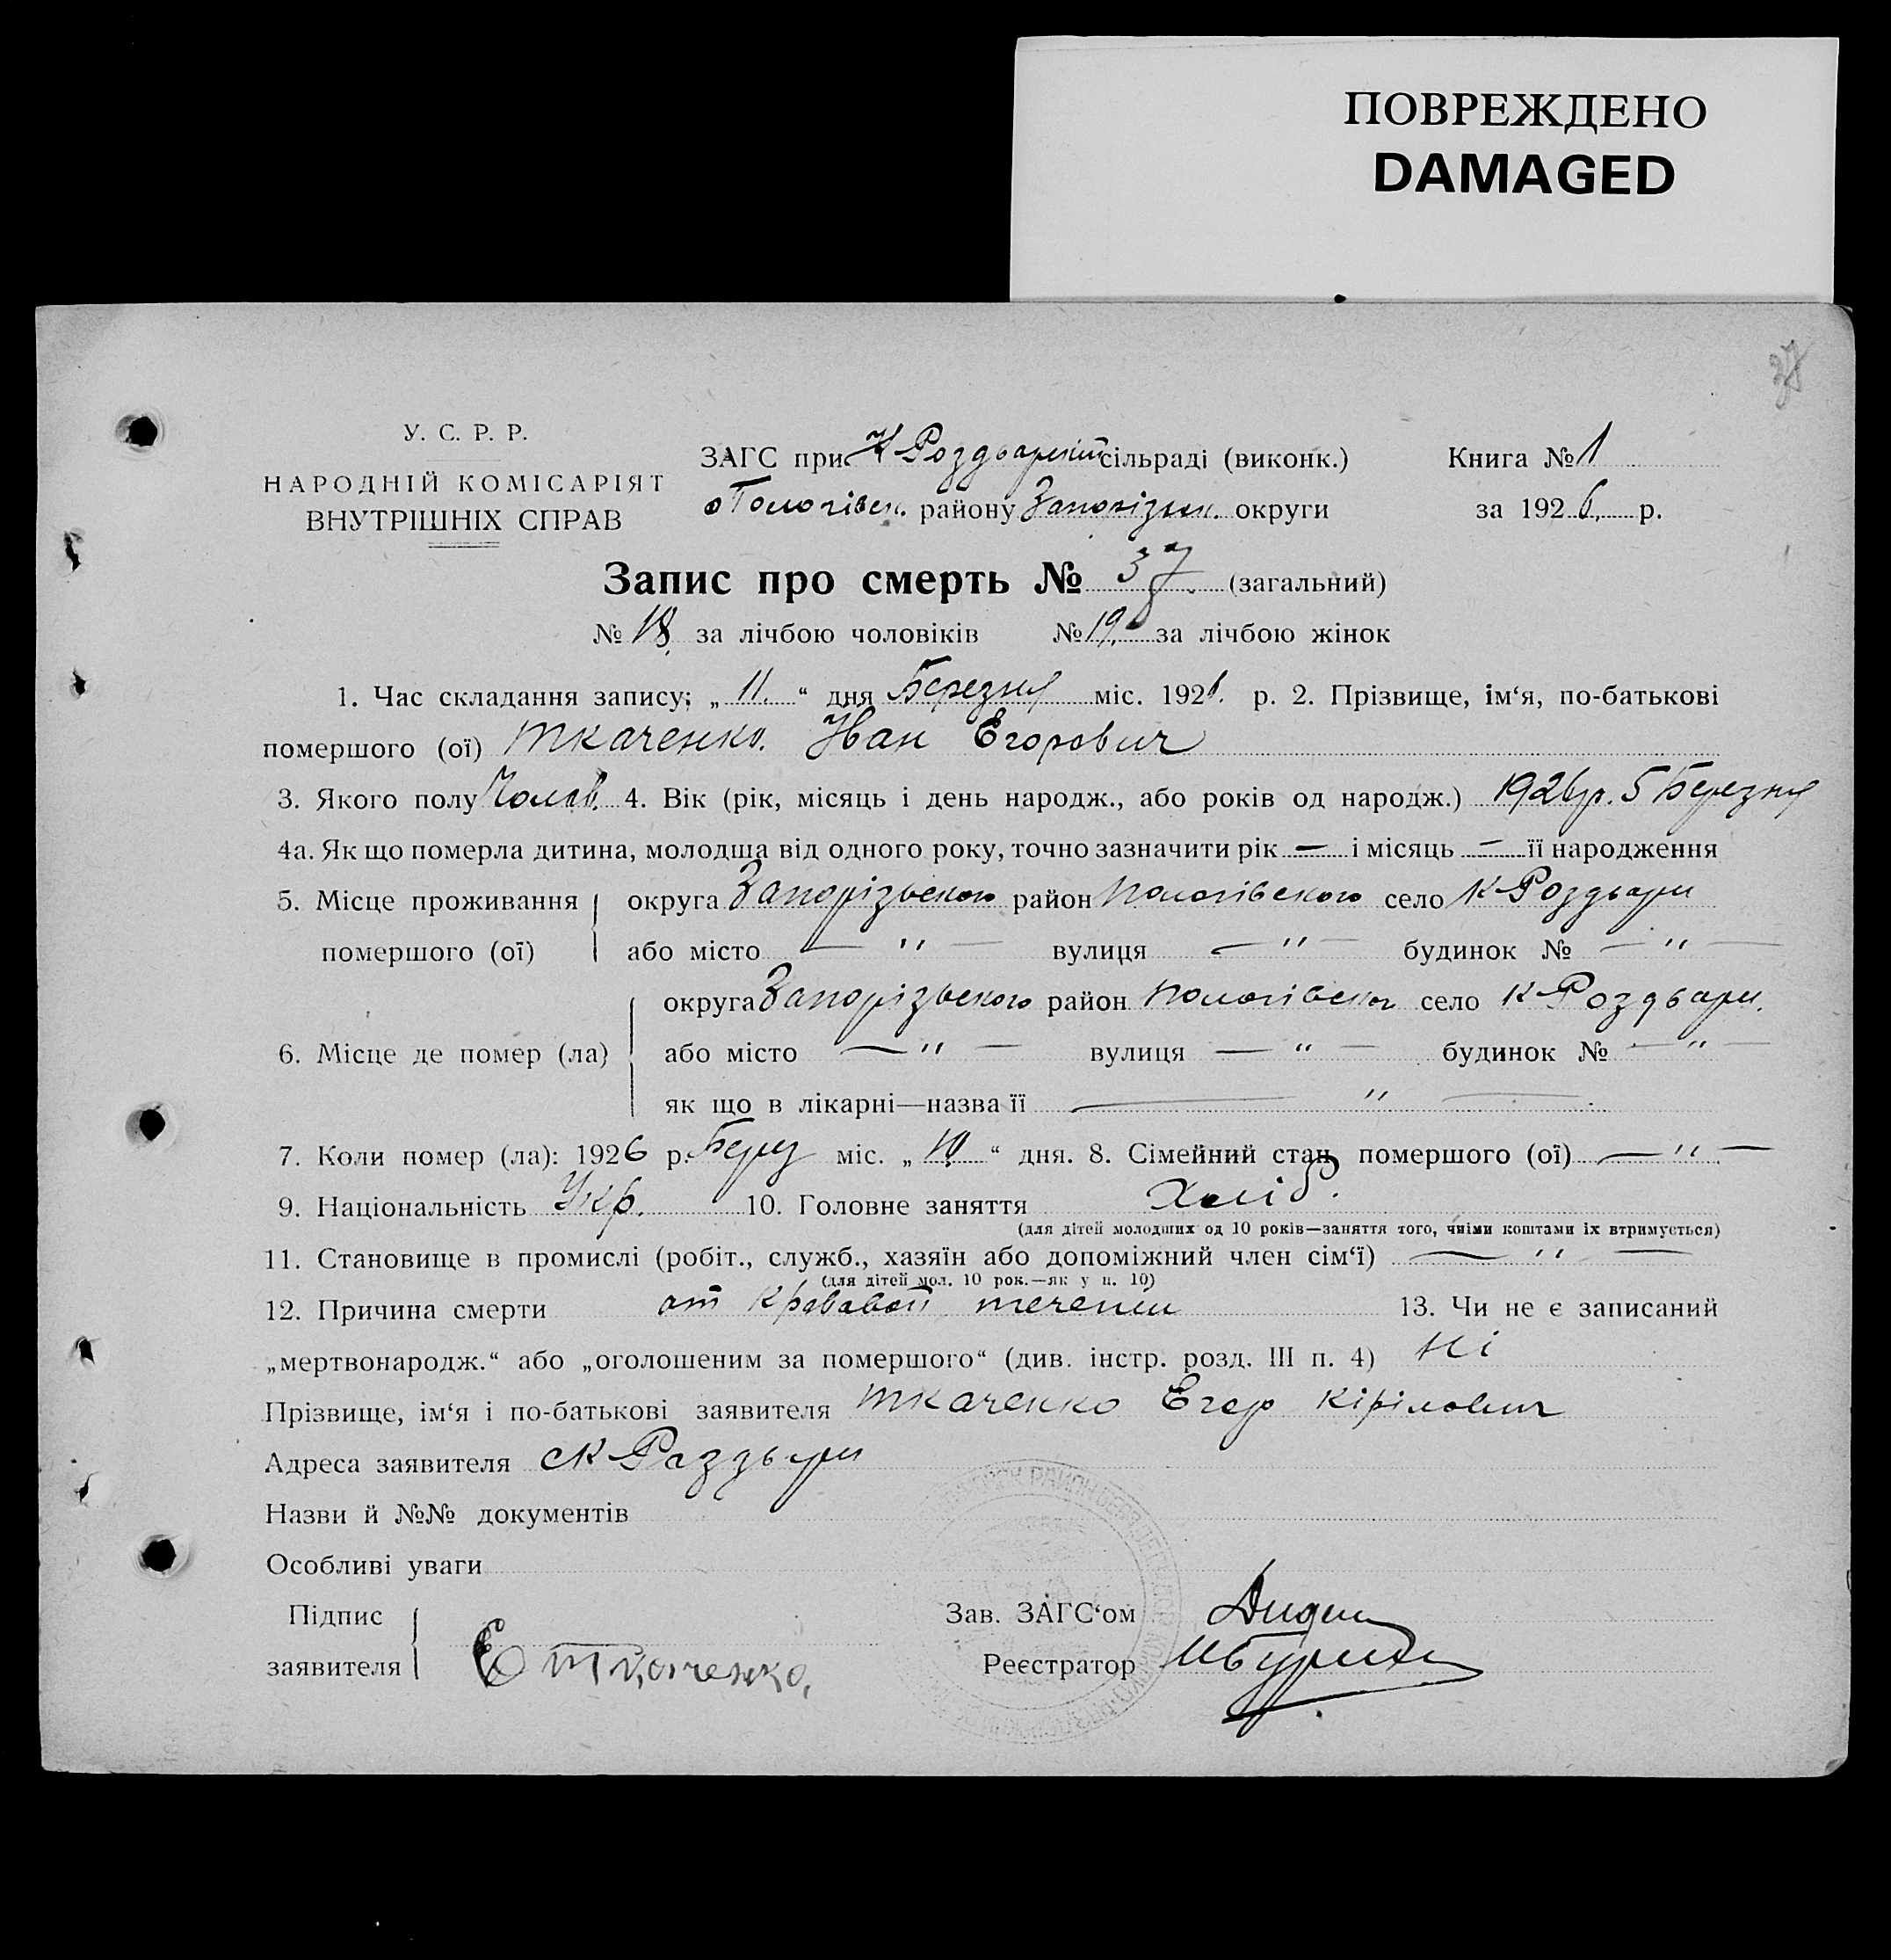 ПОВРЕЖДЕНО
DAMAGED
37
У. С. Р. Р.
НАРОДНІЙ КОМІСАРІЯТ
ВНУТРІШНІХ СПРАВ
ЗАГС при К Роздорській сільраді (виконк.) Книга № 1
Пологівськ. району Запорізьк. округи за 1926. р.
Запис про смерть № 37. (загальний)
№ 18. за лічбою чоловіків № 19. за лічбою жінок
1. Час складання запису: „ 11. “ дня Березня міс. 192 р. 2. Прізвище, ім‘я, по-батькові
помершого (ої) Ткаченко. Иван Егорович
3. Якого полу Чолов. 4. Вік (рік, місяць і день народж., або років од народж.) 1926 р. 5 Березня
4а. Як що померла дитина, молодша від одного року, точно зазначити рік — і місяць — її народження
5. Місце проживання округа Запорізького район Пологівского село К Роздори
помершого (ої) або місто — " — вулиця — " — будинок № — " —
округа Запорізького район Пологівског село К Роздори.
6. Місце де помер (ла) або місто — " — вулиця — " — будинок № — " —
як що в лікарні—назва її — " —
7. Коли помер (ла): 1926 р. Берез міс. „ 10 “ дня. 8. Сімейний стан помершого (ої) — " —
9. Національність Укр. 10. Головне заняття Хліб.
(для дітей молодших од 10 років—заняття того, чиїми коштами їх втримується)
11. Становище в промислі (робіт., служб., хазяїн або допоміжний член сім‘ї) — " —
(для дітей мол. 10 рок.—як у п. 10)
12. Причина смерти от кровавой течении 13. Чи не є записаний
„мертвонародж.“ або „оголошеним за помершого“ (див. інстр. розд. III п. 4) Ні
Прізвище, ім‘я і по-батькові заявителя Ткаченко Егор Кірілович
Адреса заявителя с К Раздори
Назви й №№ документів
Особливі уваги
Підпис Зав. ЗАГС‘ом
заявителя Е Ткаченко, Реєстратор